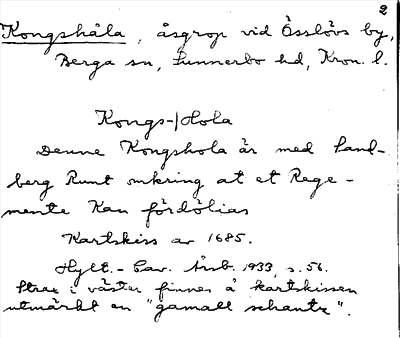 2
Kongshåla, åsgrop vid Össlövs by,
Berga sn, Sunnerbo hd, Kron. l.
Kongs-/Hola
Denne Kongshola är med Sand-
berg Runt omkring at et Rege-
mente Kan fördölias
Kartskiss av 1685.
Hylt.-Cav. Årsb. 1933, s. 56.
Strax i väster finnes å kartskissen
utmärkt en "gamall schantz".